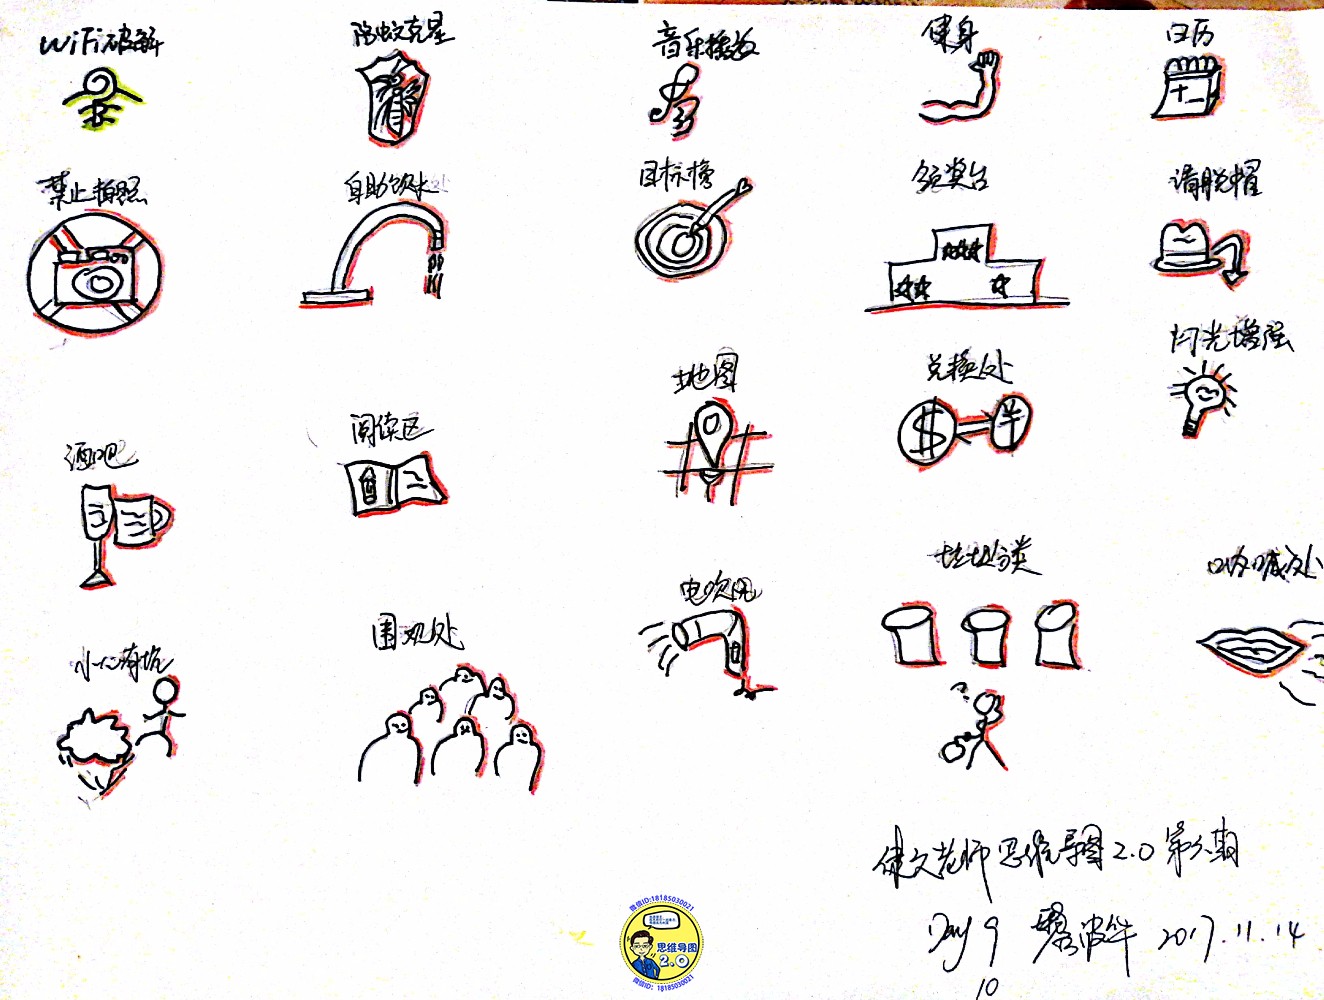 WiFi破解
防蚊克星
音乐播放
健身
日历
十一
禁止拍照
自助饮水处
目标榜
领奖台
请脱帽
地图
兑换处
$
闪光增强
酒吧
阅读区
电吹风
垃圾分类
呐喊处
小心有坑
围观处
健文老师思维导图2.0第六期
Day 9
2017.11.14
10
微信ID:18185030021
思维导图
2.0
微信ID: 18185030021